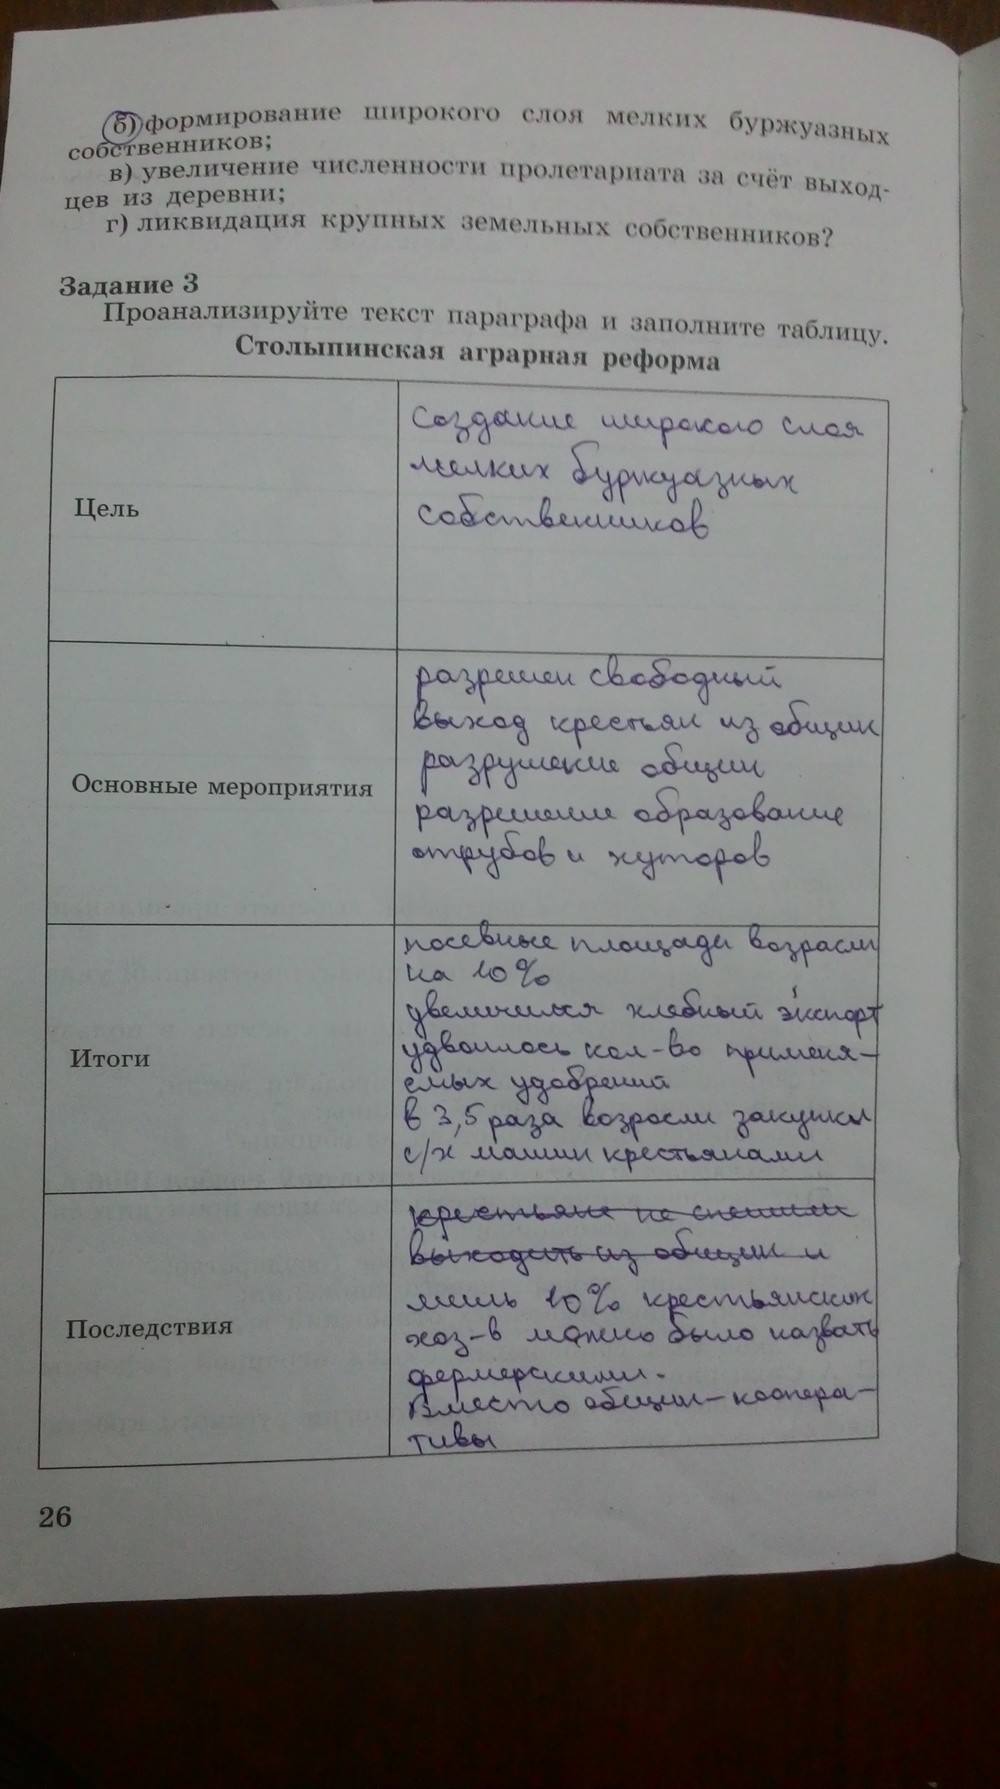 б) формирование широкого слоя мелких буржуазных
собственников;
в) увеличение численности пролетариата за счёт выход-
цев из деревни;
г) ликвидация крупных земельных собственников?
Задание 3
Проанализируйте текст параграфа и заполните таблицу.
Столыпинская аграрная реформа
Цель
создание широкого слоя
мелких буржуазных
собственников
Основные мероприятия
разрешен свободный
выход крестьян из общин
разрушение общин
разрешение образование
отрубов и хуторов
Итоги
посевные площади возрасли
на 10%
увеличился хлебный экспорт
удвоилось кол-во применя-
емых удобрений
в 3,5 раза возросли закупки
с/х машин крестьянами
Последствия
крестьяне не спешили
выходить из общин и
лишь 10% крестьянских
хоз-в можно было назвать
фермерскими.
Вместо общин - коопера-
тивы
26